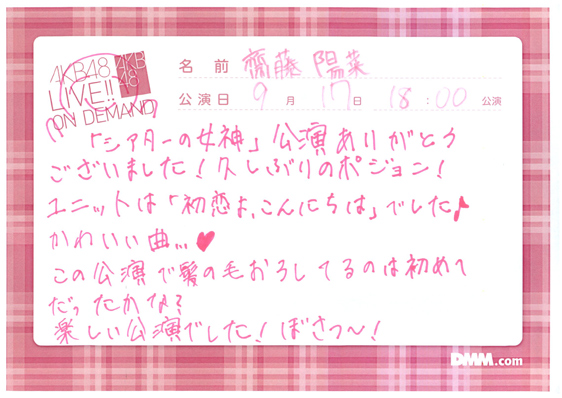 AKB48
LIVE!!
ON DEMAND
AKB
48
名 前 齋藤 陽菜
公演日 9 月 17 日 18 : 00 公演
「シアターの女神」公演ありがとう
ございました！久しぶりのポジョン！
ユニットは「初恋よ、こんにちは」でした♪
かわいい曲...♥
この公演で髪の毛おろしてるのは初めて
だったかな？
楽しい公演でした！ぼさつ〜！
DMM.com